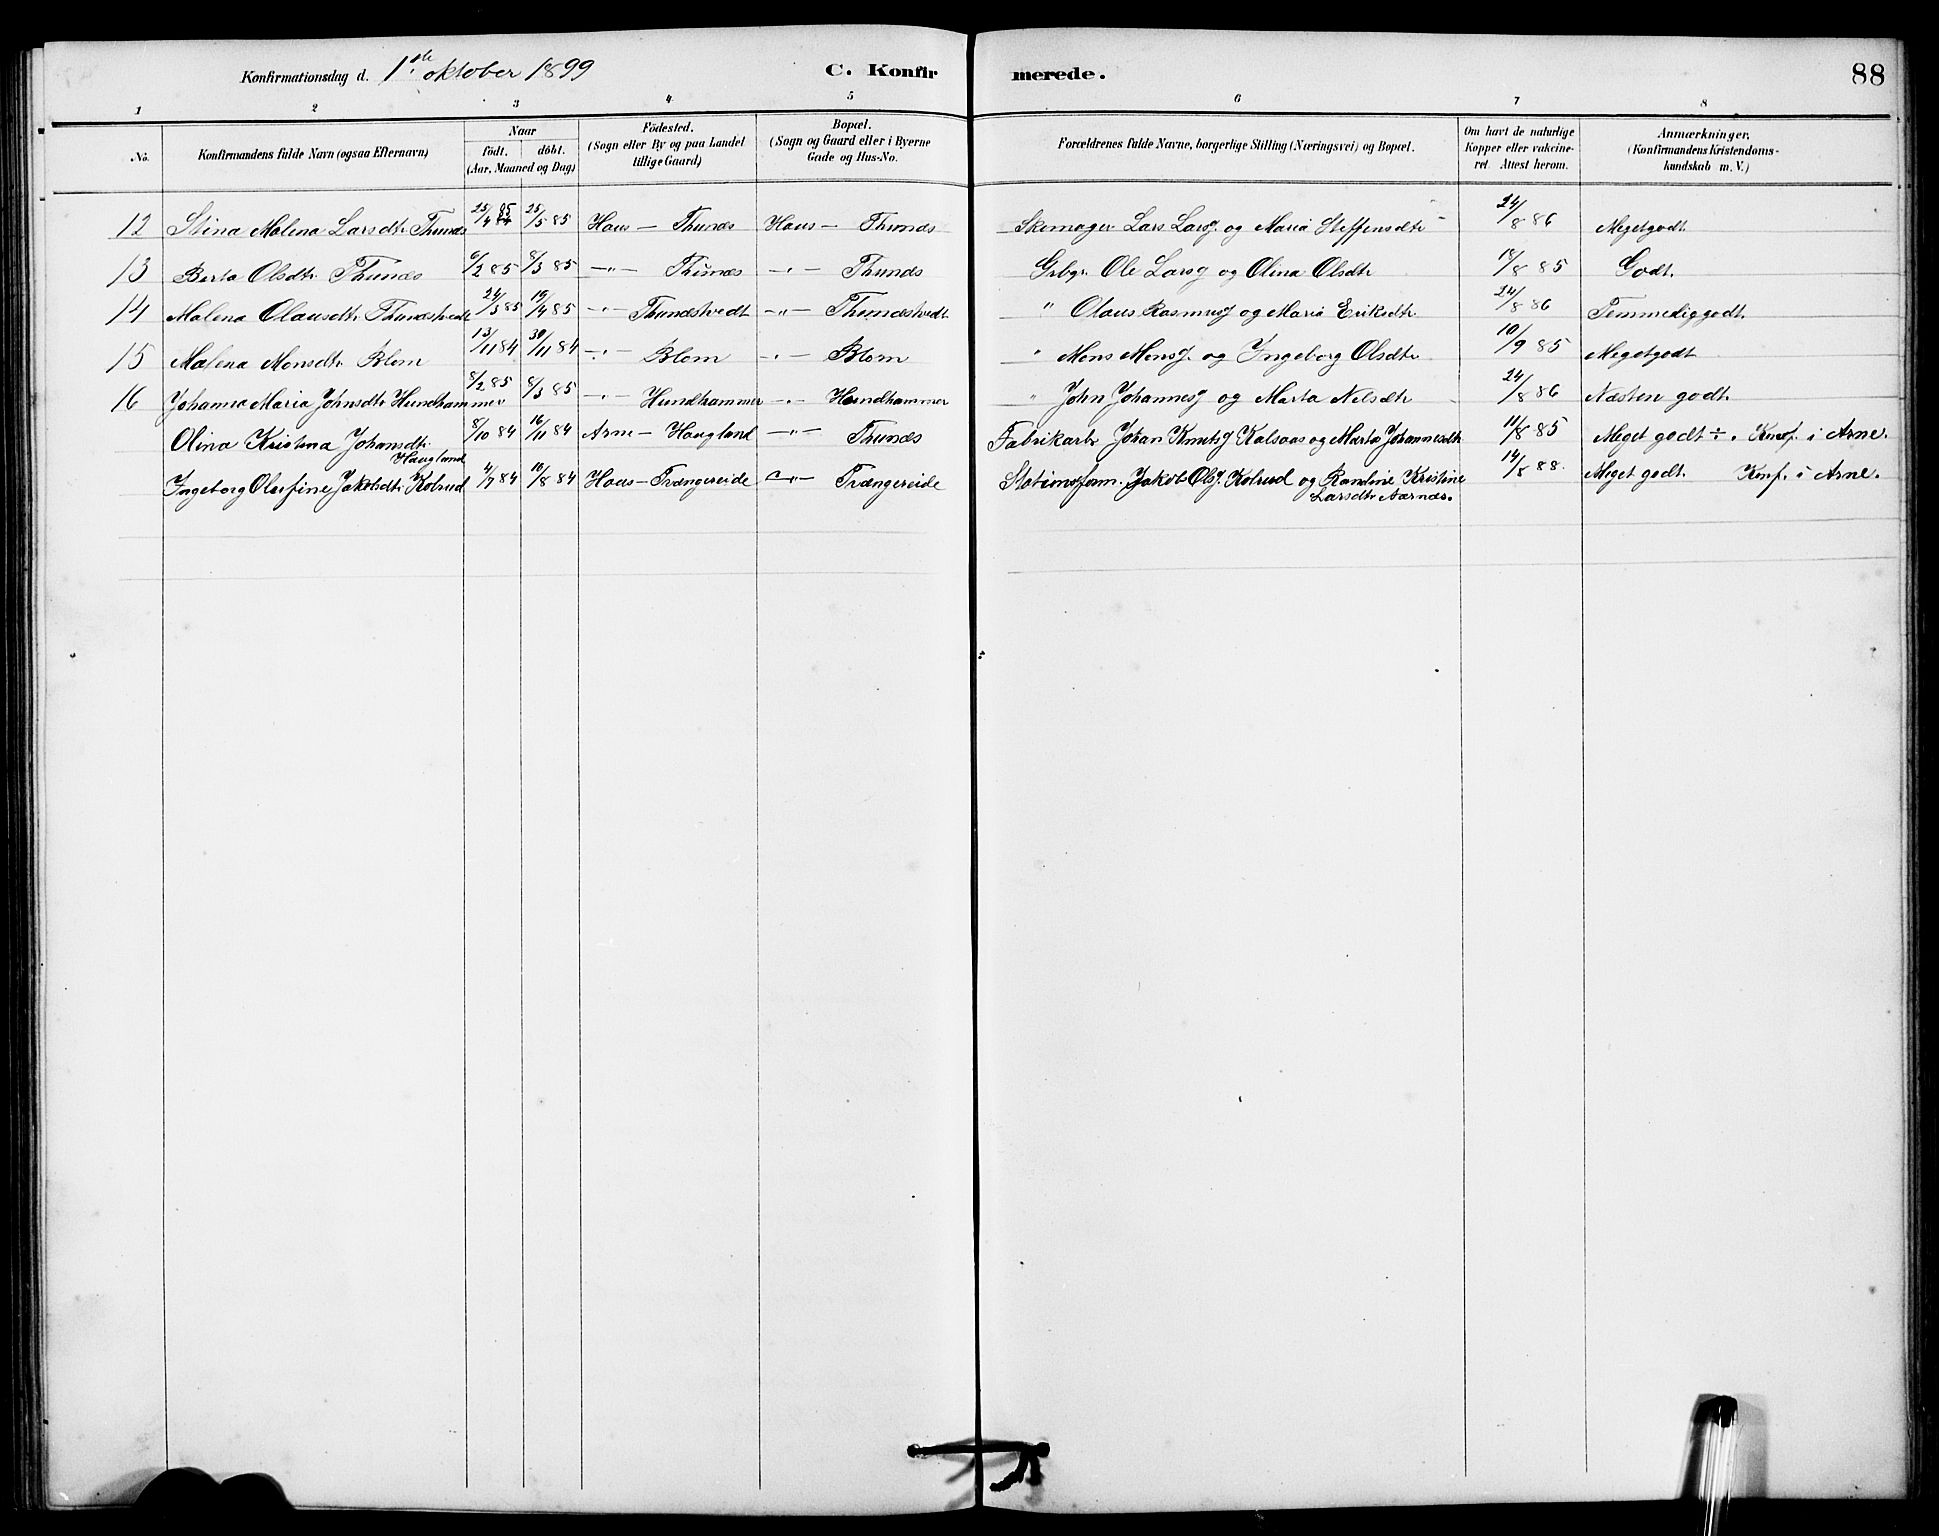 Konfirmationsdag d. 1ste oktober 1899 C. Konfirmerede. 88
1 2 3 4 5 6 7 8
No. Konfirmandens fulde Navn (ogsaa Efternavn) Naar födt. döbt. (Aar, Maaned og Dag) Födested. (Sogn eller By og paa Landet tillige Gaard) Bopæl. (Sogn og Gaard eller i Byerne Gade og Hus-No. Forældrenes fulde Navne, borgerlige Stilling (Næringsvei) og Bopæl. Om havt de naturlige Kopper eller vakcineret. Attest herom. Anmærkninger, (Konfirmandens Kristendomskundskab m. V.)
12 Stina Malena Larsdtr Thunæs 25/4 85 25/5 85 Haus — Thunæs Haus — Thunæs Skomager Lars Larsg. og Maria Steffensdtr 24/8 86 Meget godt
13 Berta Olsdtr. Thunæs 6/2 85 8/3 85 —"— Thunæs —"— Thunæs Grbgr. Ole Larsg og Olina Olsdtr 18/8 85 Godt.
14 Malena Olausdtr Thunæstvedt 24/3 85 19/4 85 —"— Thunæstvedt —"— Thunæstvedt " Olaus Rasmusg og Maria Eriksdtr 24/8 86 Temmelig godt.
15 Malena Monsdtr. Blom 13/11 84 30/11 84 —"— Blom —"— Blom " Mons Monsg. og Ingeborg Olsdtr 10/9 85 Meget godt
16 Johanna Maria Johnsdtr Hundhammer 8/2 85 8/3 85 —"— Hundhammer —"— Hundhammer " John Johannesg og Marta Nilsdtr 24/8 86 Næsten godt.
Olina Kristina Johansdtr. Haugland 8/10 84 16/11 84 Arne — Haugland —"— Thunæs Fabrikarb Johan Knutsg Kalsaas og Marta Johannesdtr 11/8 85 Meget godt ÷. Konf. i Arne.
Ingeborg Olufine Jakobsdtr. Kolrud 4/7 84 10/8 84 Haus — Trængereide —"— Trængereide Stationsform. Jakob Olsg. Kolrud og Randine Kristine Larsdtr Aarnæs. 14/8 88. Meget godt. Konf. i Arne.